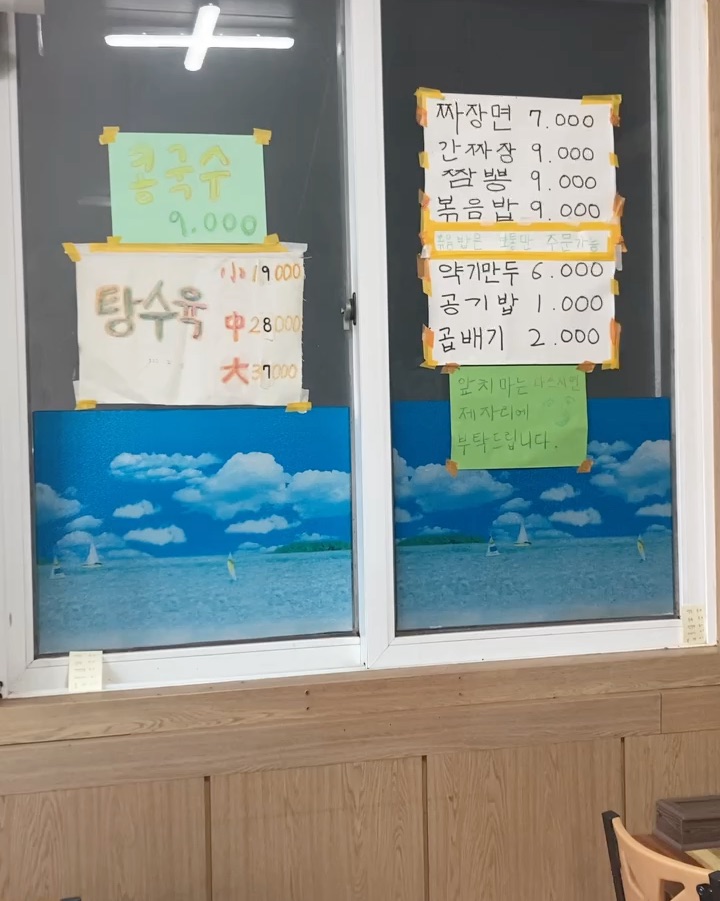 콩국수
9.000
탕수육
小 19000
中 28000
大 37000
짜장면 7.000
간짜장 9.000
짬뽕 9.000
볶음밥 9.000
볶음밥은 보통만 주문가능
약기만두 6.000
공기밥 1.000
곱배기 2.000
앞치마는 다쓰시면
제자리에
부탁드립니다.